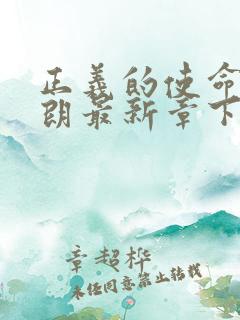 正義的使命
朗最新章下
章超樺
未经同意禁止转载